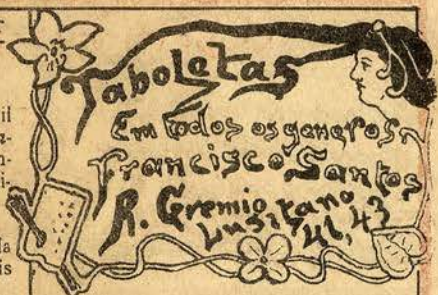 Taboletas
Em todos os generos
Francisco Santos
R. Gremio
Lusitano
41, 43